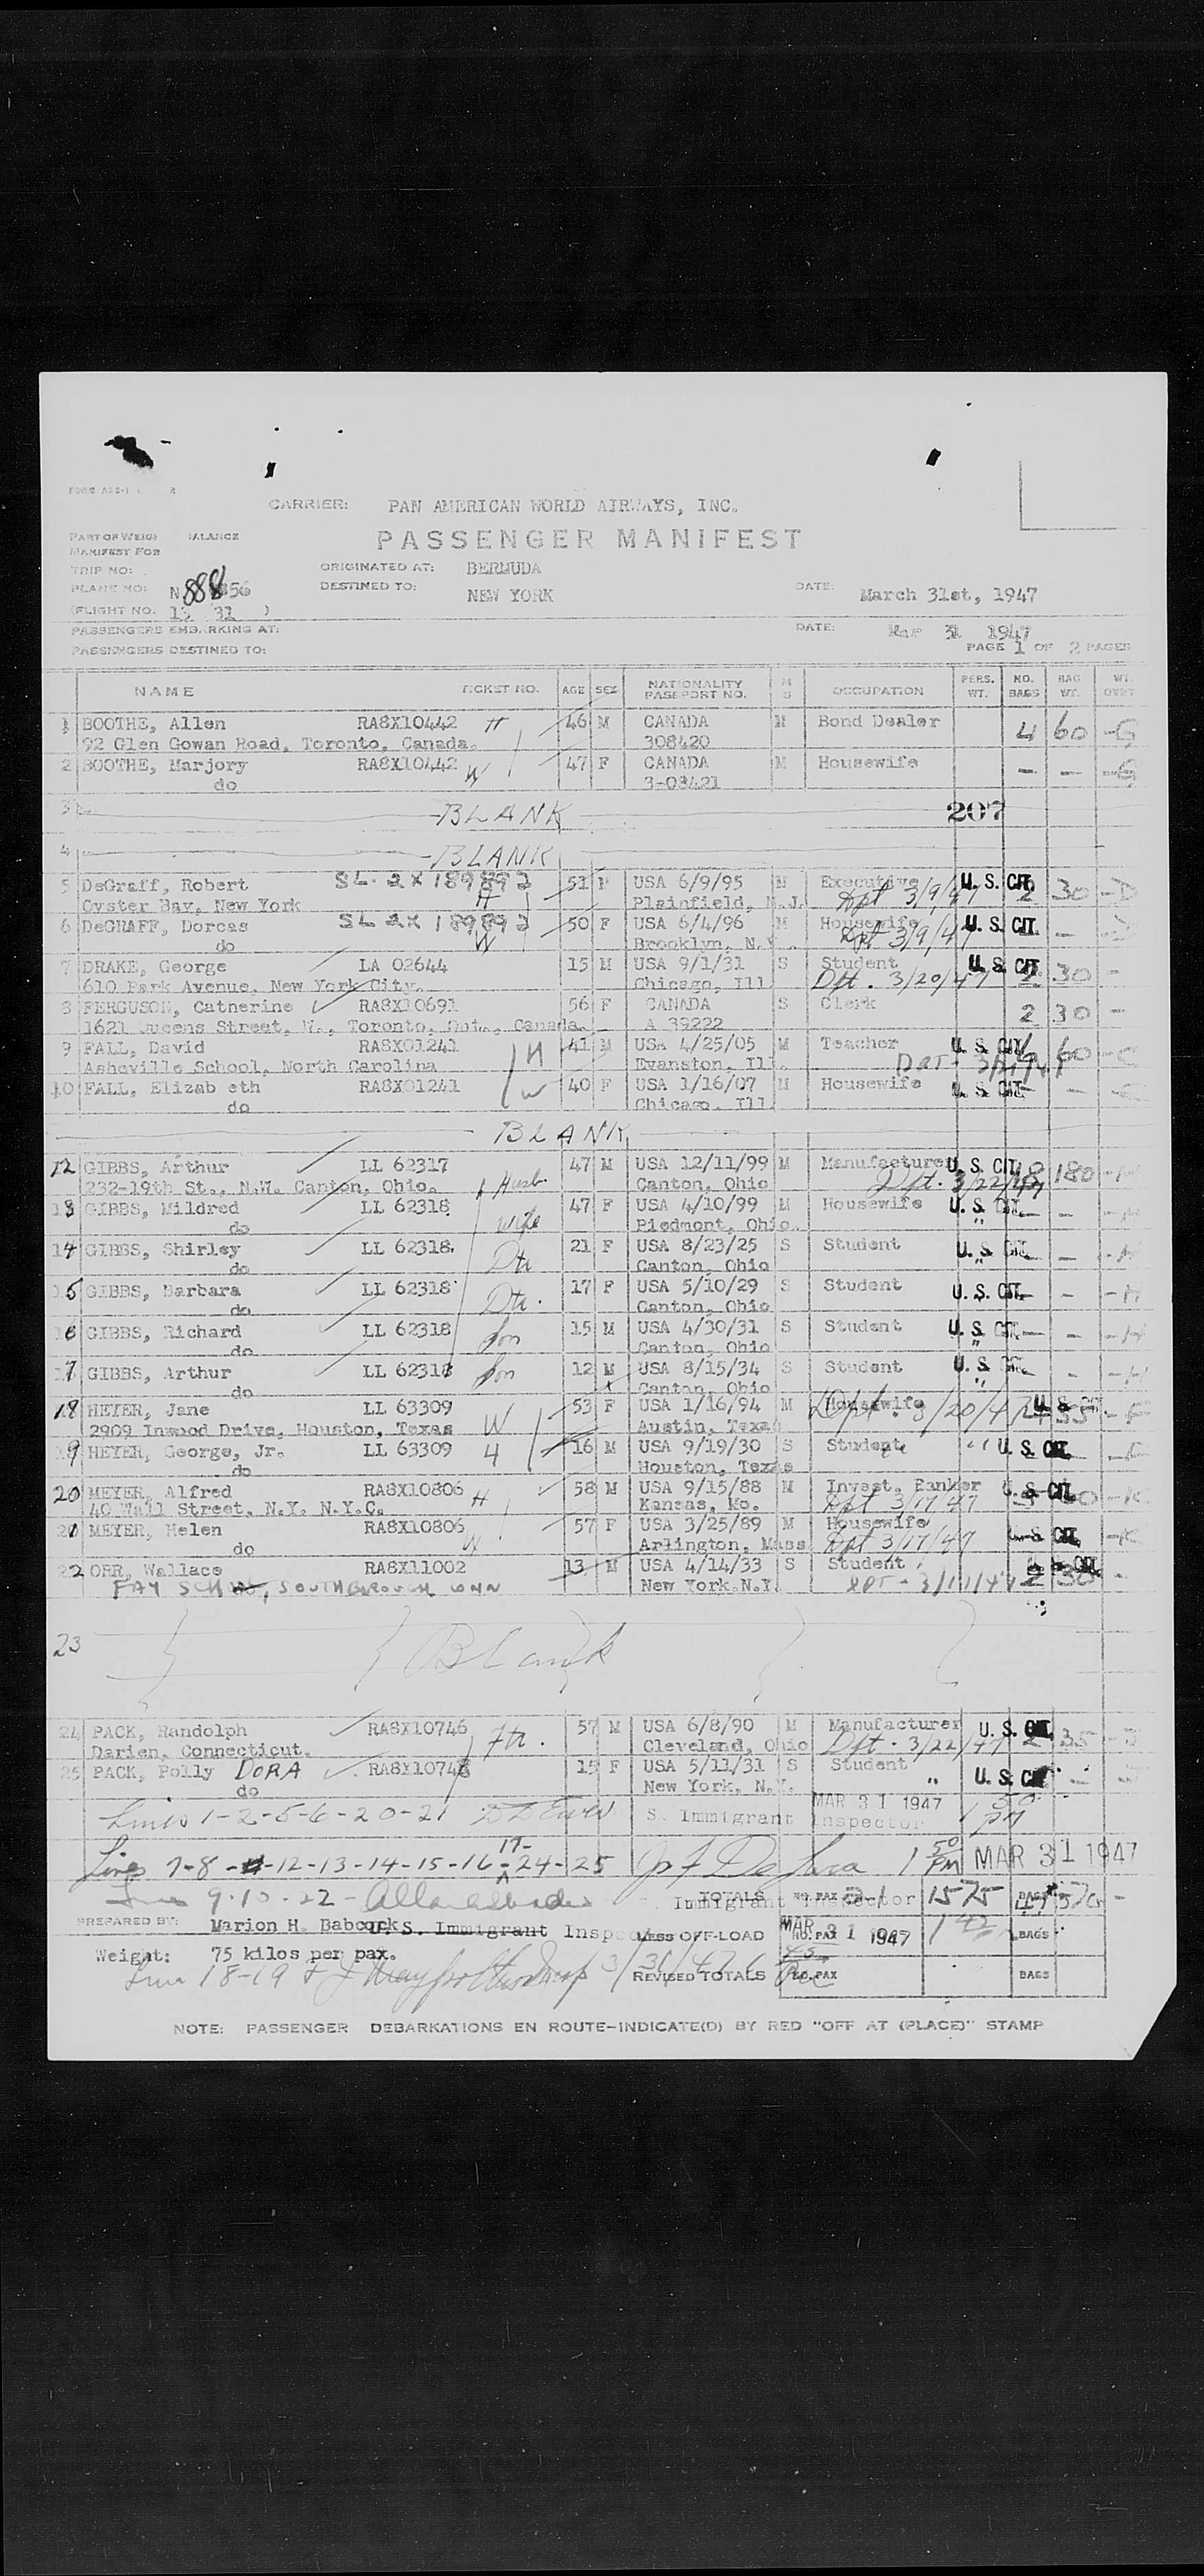 CARRIER: PAN AMERICAN WORLD AIRWAYS, INC.
PASSENGER MANIFEST
PART OF WEIGH BALANCE
MANIFEST FOR
TRIP NO:
ORIGINATED AT: BERMUDA
PLANE NO: N 888 56
DESTINED TO: NEW YORK
DATE: March 31st, 1947
(FLIGHT NO. 31 )
PASSENGERS EMBARKING AT:
DATE: Mar 31 1947
PASSENGERS DESTINED TO:
PAGE 1 OF 2 PAGES
NAME TICKET NO. AGE SEX NATIONALITY PASSPORT NO. M S OCCUPATION PERS. WT. NO. BAGS BAG WT. WT. OVWT
1 BOOTHE, Allen RA8X10442 H 46 M CANADA M Bond Dealer 4 60 -G
92 Glen Gowan Road, Toronto, Canada. 308420
2 BOOTHE, Marjory RA8X10442 W 47 F CANADA M Housewife - - -G
do 3-08421
3 BLANK 207
4 BLANK
5 DeGraff, Robert SL 2X 189892 H 51 USA 6/9/95 M Executive U.S. CIT. 2 30 -D
Oyster Bay, New York Plainfield, N.J. Dpt 3/9/47
6 DeGRAFF, Dorcas SL 2X 189892 W 50 F USA 6/4/96 M Housewife U.S. CIT. -
do Brooklyn, N.Y. Dpt 3/9/47
7 DRAKE, George LA 02644 15 M USA 9/1/31 S Student U.S. CIT. 2 30 -
610 Park Avenue, New York City. Chicago, Ill Dpt. 3/20/47
8 FERGUSON, Catherine RA8X10691 56 F CANADA S Clerk 2 30 -
1621 Queens Street, W., Toronto, Ont., Canada. A 39222
9 FALL, David RA8X01241 H 41 M USA 4/25/05 M Teacher U.S. CIT. 60
Asheville School, North Carolina Evanston, Ill.
10 FALL, Elizab eth RA8X01241 W 40 F USA 1/16/07 M Housewife U.S. CIT. -
do Chicago, Ill
BLANK
12 GIBBS, Arthur LL 62317 Husb 47 M USA 12/11/99 M Manufacturer U.S. CIT. 180 -H
232-19th St., N.W. Canton, Ohio. Canton, Ohio Dpt. 3/22/47
13 GIBBS, Mildred LL 62318 wife 47 F USA 4/10/99 M Housewife U.S. CIT. - - -H
do Piedmont, Ohio.
14 GIBBS, Shirley LL 62318 Dtr 21 F USA 8/23/25 S Student U.S. CIT. - - -H
do Canton, Ohio
15 GIBBS, Barbara LL 62318 Dtr. 17 F USA 5/10/29 S Student U.S. CIT. - - -H
do Canton, Ohio
16 GIBBS, Richard LL 62318 Son 15 M USA 4/30/31 S Student U.S. CIT. - - -H
do Canton, Ohio
17 GIBBS, Arthur LL 62318 Son 12 M USA 8/15/34 S Student U.S. CIT. - - -H
do Canton, Ohio
18 HEYER, Jane LL 63309 W 53 F USA 1/16/94 M Housewife Dpt. 3/20/47 U.S. CIT. 55 -F
2909 Inwood Drive, Houston, Texas Austin, Texas
19 HEYER, George, Jr. LL 63309 16 M USA 9/19/30 S Student U.S. CIT.
do Houston, Texas
20 MEYER, Alfred RA8X10806 H 58 M USA 9/15/88 M Invest. Banker U.S. CIT. -K
40 Wall Street, N.Y. N.Y.C. Kansas, Mo. Dpt 3/17/47
21 MEYER, Helen RA8X10806 W 57 F USA 3/25/89 M Housewife U.S. CIT. -K
do Arlington, Mass Dpt 3/17/47
22 ORR, Wallace RA8X11002 13 M USA 4/14/33 S Student U.S. CIT. 2 30 -
FAY SCHOOL, SOUTHBOROUGH CONN New York N.Y.
23 Blank
24 PACK, Randolph RA8X10746 Ftr. 57 M USA 6/8/90 M Manufacturer U.S. CIT. 2 35
Darien, Connecticut. Cleveland, Ohio Dpt. 3/22/47
25 PACK, Polly DORA RA8X10746 15 F USA 5/11/31 S Student " U.S. CIT. -
do New York, N.Y.
Lines 1-2-5-6-20-21 S. Immigrant Inspector MAR 31 1947
Lines 7-8-12-13-14-15-16-17-24-25 1 50 PM MAR 31 1947
9-10-22 Immigrant Inspector TOTALS NO. PAX 21 1575 BAGS
PREPARED BY: Marion H. Babcock U.S. Immigrant Inspector LESS OFF-LOAD MAR 31 1947 NO. PAX BAGS
Weight: 75 kilos per pax.
Line 18-19 3/31/47 REVISED TOTALS NO. PAX BAGS
NOTE: PASSENGER DEBARKATIONS EN ROUTE-INDICATE(D) BY RED "OFF AT (PLACE)" STAMP